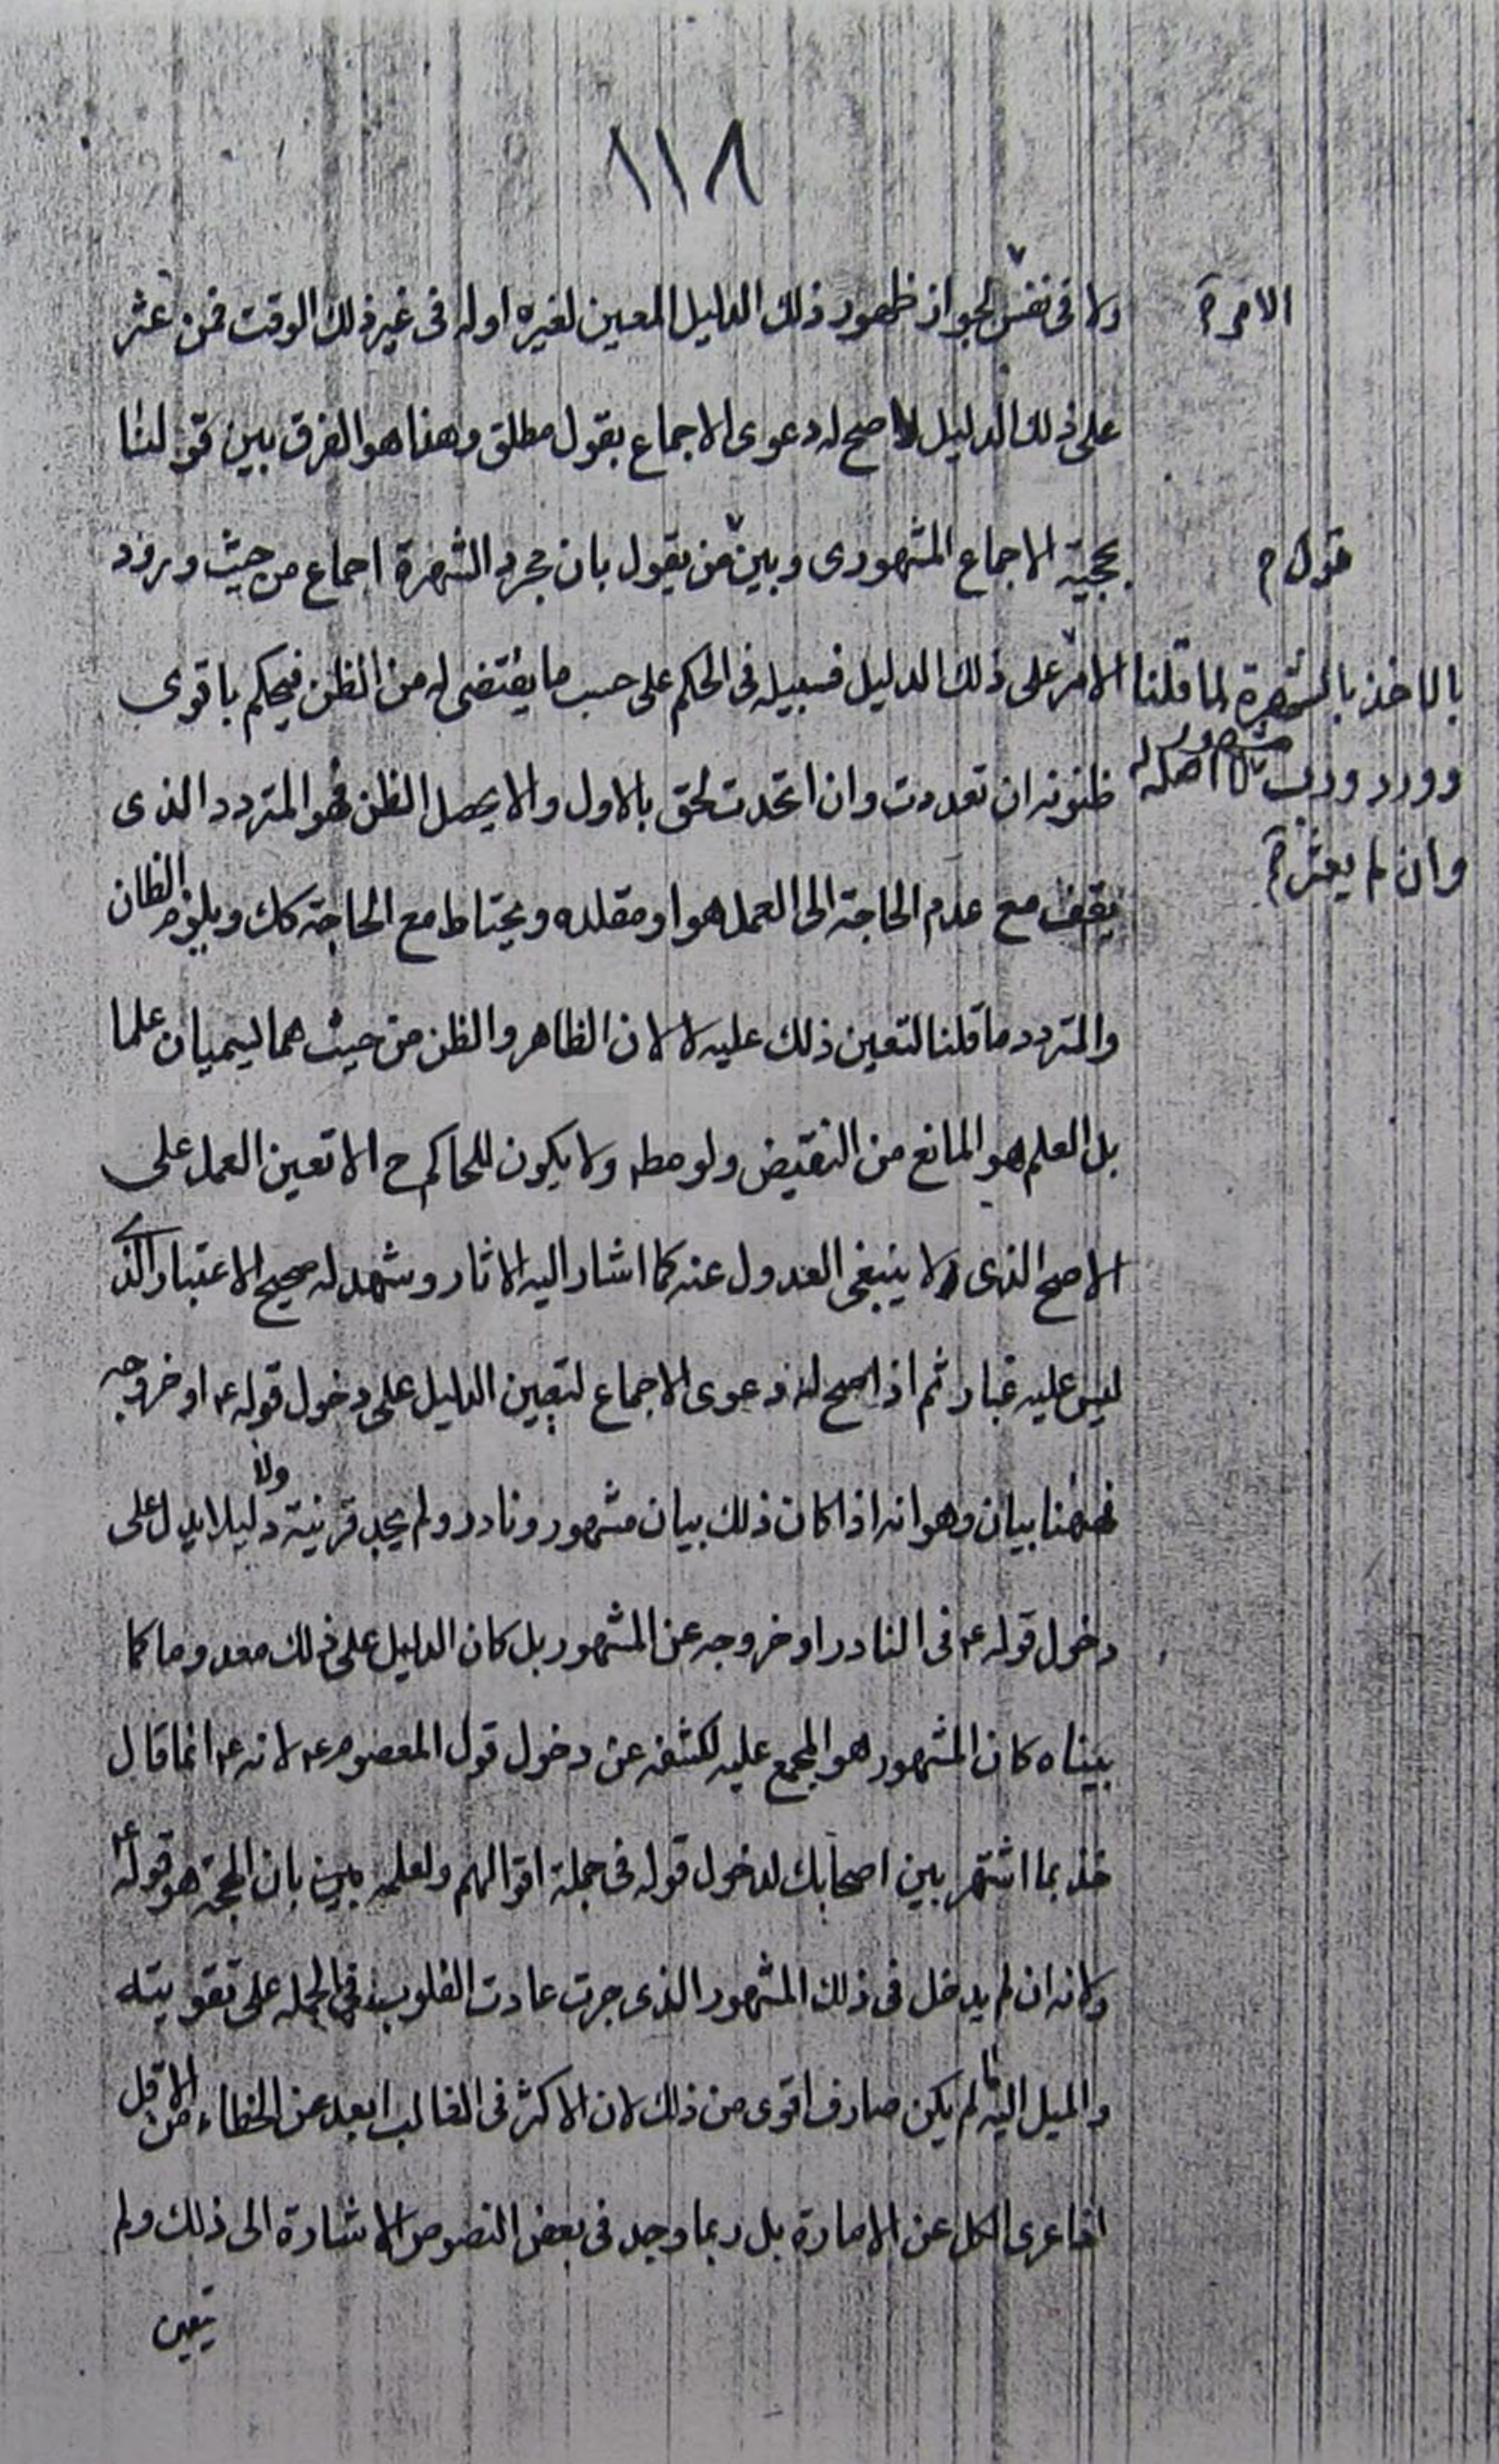 ١١٨
ولا فى نفس لجواز ظهور ذلك الدليل المعين لغيره اوله فى غير ذلك الوقت فمن عثر
الامر م
على ذلك الدليل صح له دعوى الاجماع بقول مطلق وهذا هو الفرق بين قولنا
بحجية الاجماع المشهورى وبين من يقول بان مجرد الشهرة اجماع من حيث ورود
قول م
الامر على ذلك الدليل فسبيله فى الحكم على حسب ما يقتضى له من الظن فيحكم باقوى
بالاخذ بالشهرة لما قلنا
ظنونه ان تعددت وان اتحدت لحق بالاول والا يحصل الظن فهو المتردد الذى
وورد ورب مشهور لا اصل له
وان لم يعثر م
يقف مع عدم الحاجة الى العمل هو او مقلده ويحتاط مع الحاجة كك ويلزم الظان
والمتردد ما قلنا لتعين ذلك عليه لا لان الظاهر والظن من حيث هما يسميان علما
بل العلم هو المانع من النقيض ولو مطه ولا يكون للحاكم ح الا تعين العمل على
الاصح الذى لا ينبغى العدول عنه كما اشار اليه الاثار وشهد له صحيح الاعتبار الذى
ليس عليه غبار ثم اذا صح له دعوى الاجماع لتعيين الدليل على دخول قوله ع او خروجه
فههنا بيان وهو انه اذا كان ذلك بيان مشهور ونادر ولم يجد قرينة ولا دليلا يدل على
دخول قوله ع فى النادر او خروجه عن المشهور بل كان الدليل على ذلك معدوما كما
بيناه كان المشهور هو المجمع عليه لكشفه عن دخول قول المعصوم ع لانه ع انما قال
خذ بما اشتهر بين اصحابك لدخول قوله فى جملة اقوالهم ولعلمه بان الحجة هو قوله ع
وكانه ان لم يدخل فى ذلك المشهور الذى جرت عادت القلوب فى الجمله على تقويته
والميل اليه لم يكن صارف اقوى من ذلك لان الاكثر فى الغالب ابعد عن الخطاء من الاقل
اذا عرى الكل عن الامارة بل ربما وجد فى بعض النصوص الاشارة الى ذلك ولم
تعين